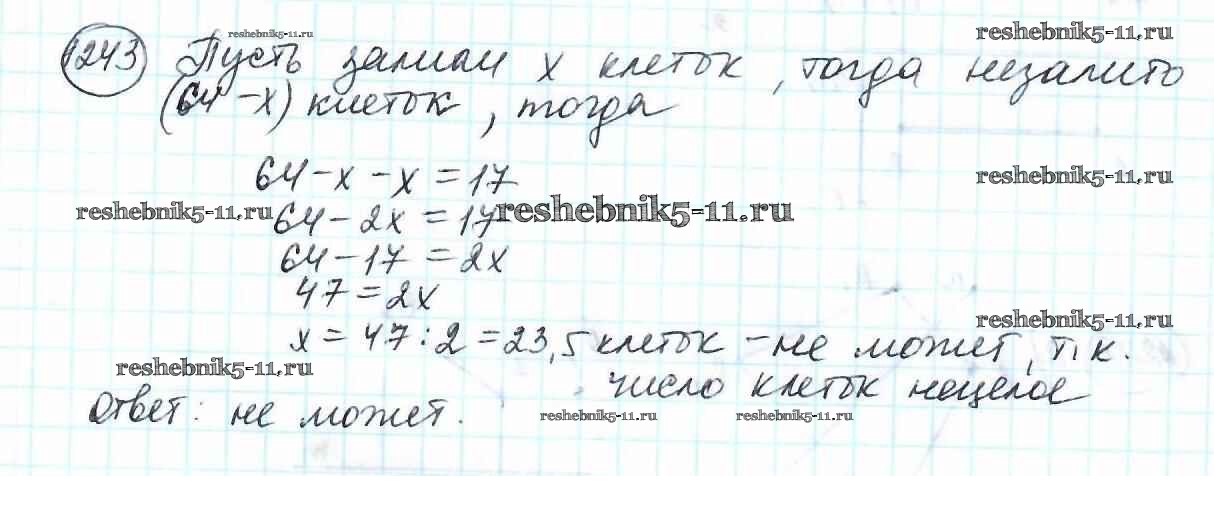 reshebnik5-11.ru
reshebnik5-11.ru
1243 Пусть залили x клеток, тогда незалито
(64-x) клеток, тогда
64-x-x=17
reshebnik5-11.ru
reshebnik5-11.ru
64-2x=17
reshebnik5-11.ru
64-17=2x
47=2x
reshebnik5-11.ru
x=47:2=23,5 клеток - не может, т.к.
reshebnik5-11.ru
число клеток нецелое
Ответ: не может.
reshebnik5-11.ru
reshebnik5-11.ru